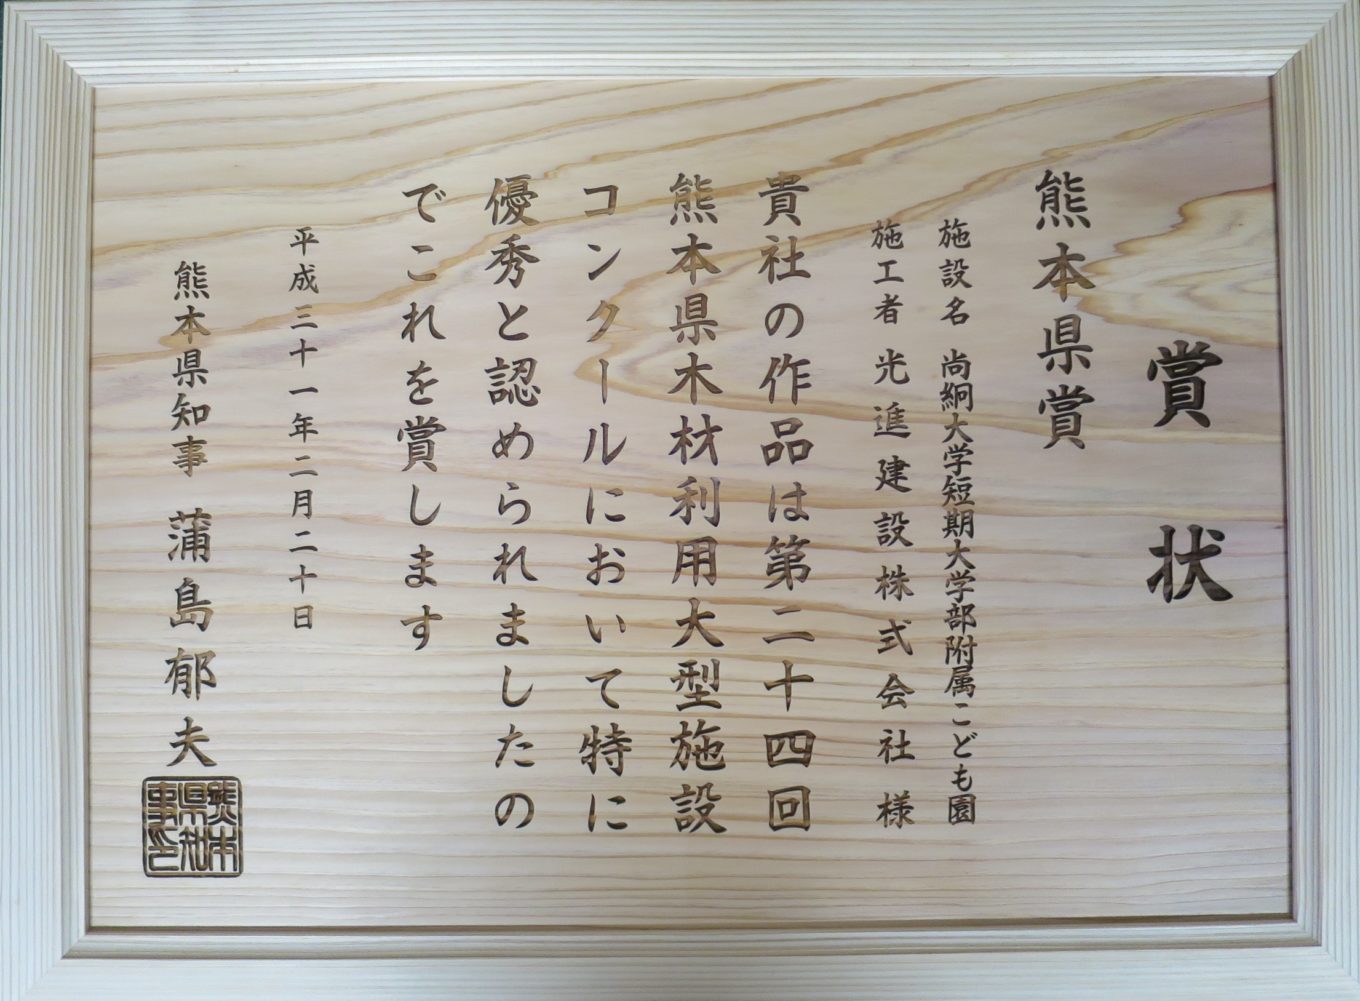 賞状
熊本県賞
施設名 尚絅大学短期大学部附属こども園
施工者 光進建設株式会社様
貴社の作品は第二十四回
熊本県木材利用大型施設
コンクールにおいて特に
優秀と認められましたの
でこれを賞します
平成三十一年二月二十日
熊本県知事 蒲島郁夫
熊本県知事之印